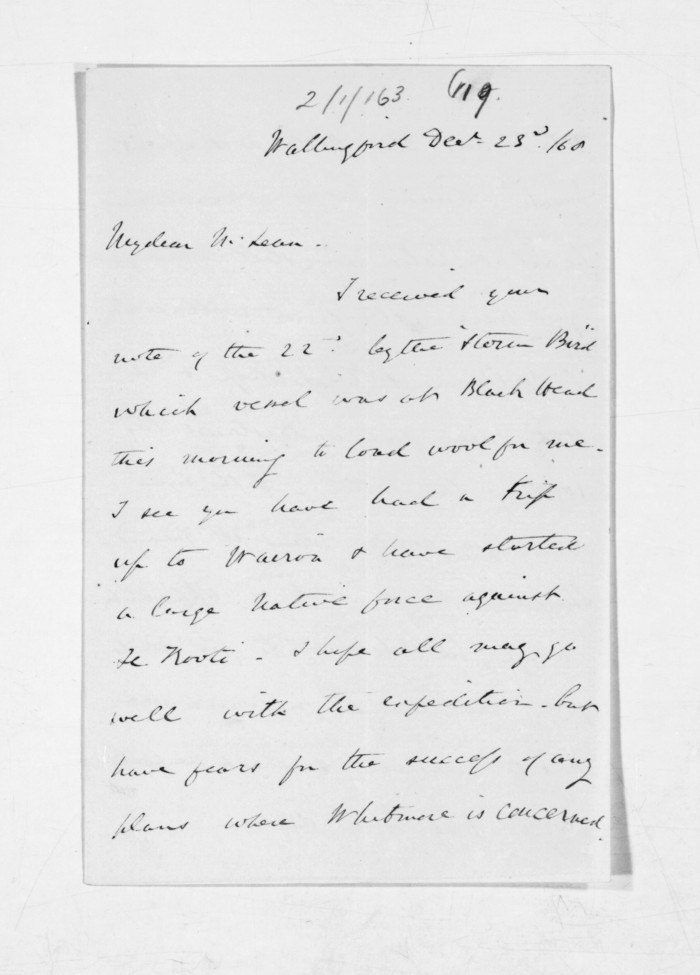 2/1/163. 619.
Wallingford Decr 23d /68
My dear McLean.
I received your
note of the 22d. by the "Storm Bird"
which vessel was at Black Head
this morning to load wool for me.
I see you have had a trip
up to Wairoa & have started
a large Native force against
Te Kooti. I hope all may go
well with the expedition. but
have fears for the success of any
plans where Whitmore is concerned.